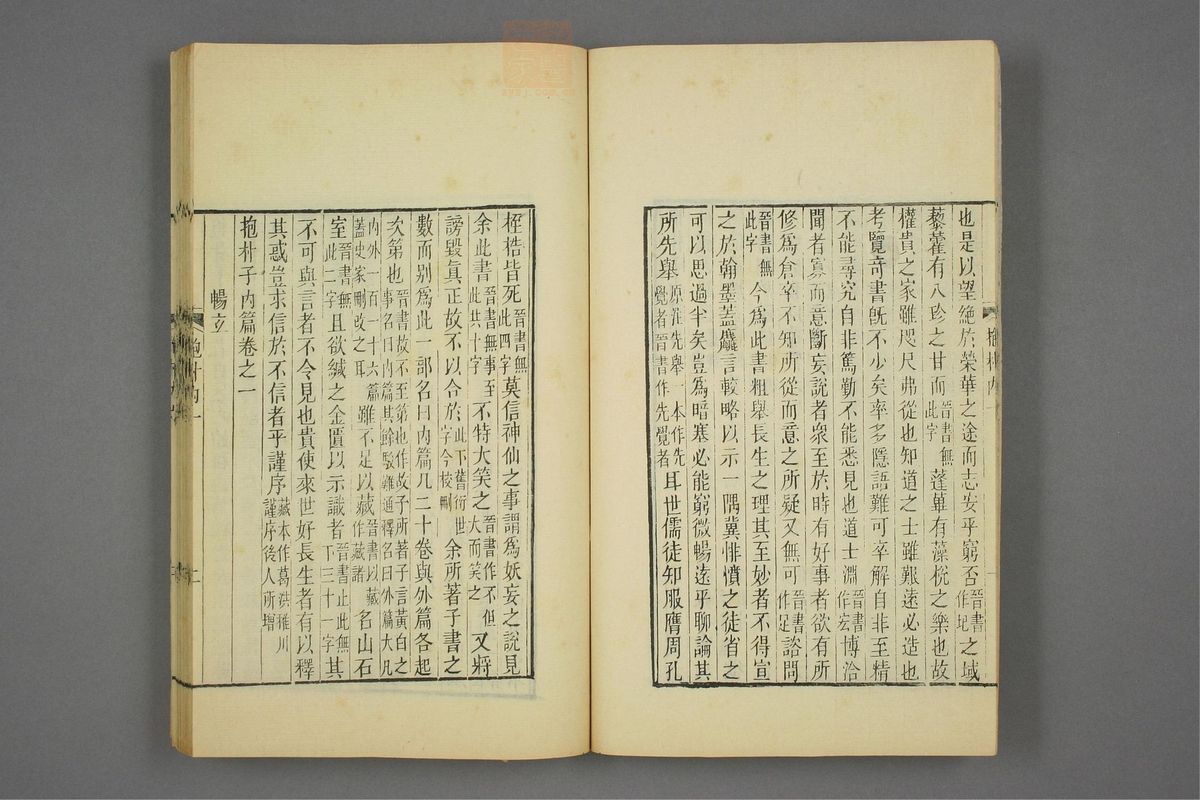 也是以望絕於榮華之途而志安乎窮否晉書作圮之域
藜藿有八珍之甘而晉書無此字蓬蓽有藻梲之樂也故
權貴之家雖咫尺弗從也知道之士雖艱遠必造也
考覽奇書旣不少矣率多隱語難可卒解自非至精
不能尋究自非篤勤不能悉見也道士淵晉書作宏博洽
聞者寡而意斷妄說者衆至於時有好事者欲有所
修爲倉卒不知所從而意之所疑又無可晉書作足諮問
晉書無此字今爲此書粗舉長生之理其至妙者不得宣
之於翰墨蓋麤言較略以示一隅冀悱憤之徒省之
可以思過半矣豈爲暗塞必能窮微暢遠乎聊論其
所先舉原注先舉一本作先覺者晉書作先覺者耳世儒徒知服膺周孔
抱朴內一
桎梏皆死晉書無此四字莫信神仙之事謂爲妖妄之說見
余此書晉書無事至此共十字不特大笑之晉書作不但大而笑之又將
謗毀眞正故不以合於此下舊衍世字今校刪余所著子書之
數而别爲此一部名曰內篇凡二十卷與外篇各起
次第也晉書故不至第也作故子所著子言黃白之事名曰內篇其餘駁難通釋名曰外篇大凡
內外一百一十六篇蓋史家刪改之耳雖不足以藏晉書以藏作藏諸名山石
室晉書無此二字且欲緘之金匱以示識者晉書止此無下三十一字其
不可與言者不令見也貴使來世好長生者有以釋
其惑豈求信於不信者乎謹序藏本作葛洪稚川謹序後人所增
抱朴子內篇卷之一
暢玄
抱朴內一
二